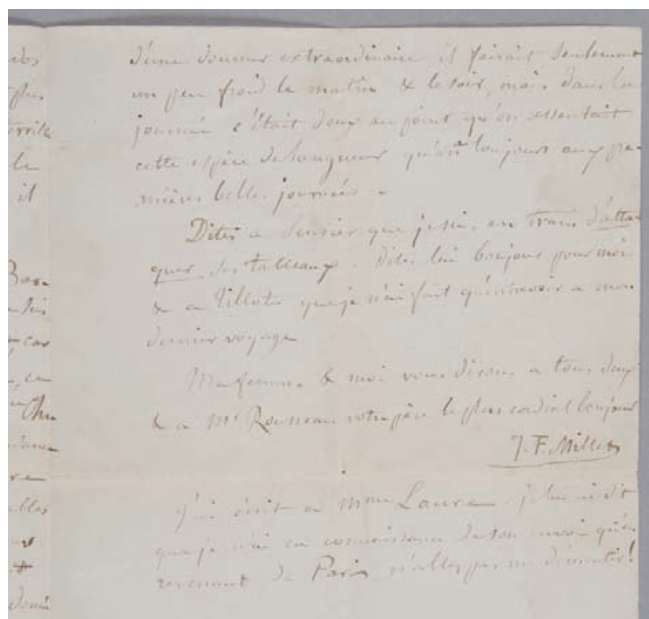 d'une douceur extraordinaire il faisait seulement
un peu froid le matin & le soir, mais dans la
journée c'était doux au point qu'on ressentait
cette espèce de langueur qu'on a toujours aux pre-
mières belles journées.
Dites a Sensier que je suis en train d'atta-
quer ses tableaux. Dites lui bonjour pour moi
& a Tillot que je n'ai fait qu'entrevoir a mon
dernier voyage
Ma femme & moi vous disons a tous deux
& a Mr Rousseau votre père le plus cordial bonjour
J. F. Millet
J'ai écrit a Mme Laure. je lui ai dit
que je n'ai eu connaissance de son envoi qu'en
revenant de Paris, n'allez pas me démentir!